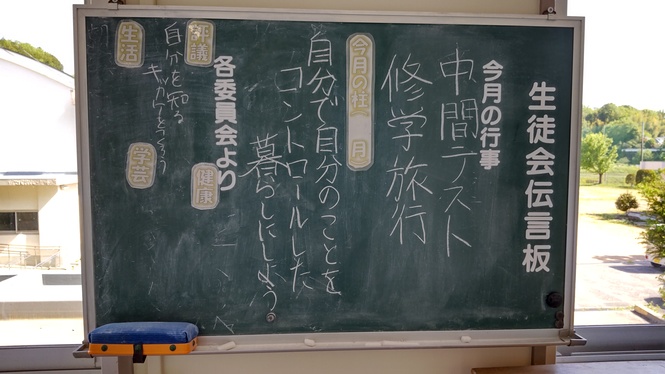 生徒会伝言板
今月の行事
中間テスト
修学旅行
今月の柱(　月)
自分で自分のことを
コントロールした
暮らしにしよう。
各委員会より
評議
自分を知る
キッカケをつくろう
健康
生活
学芸